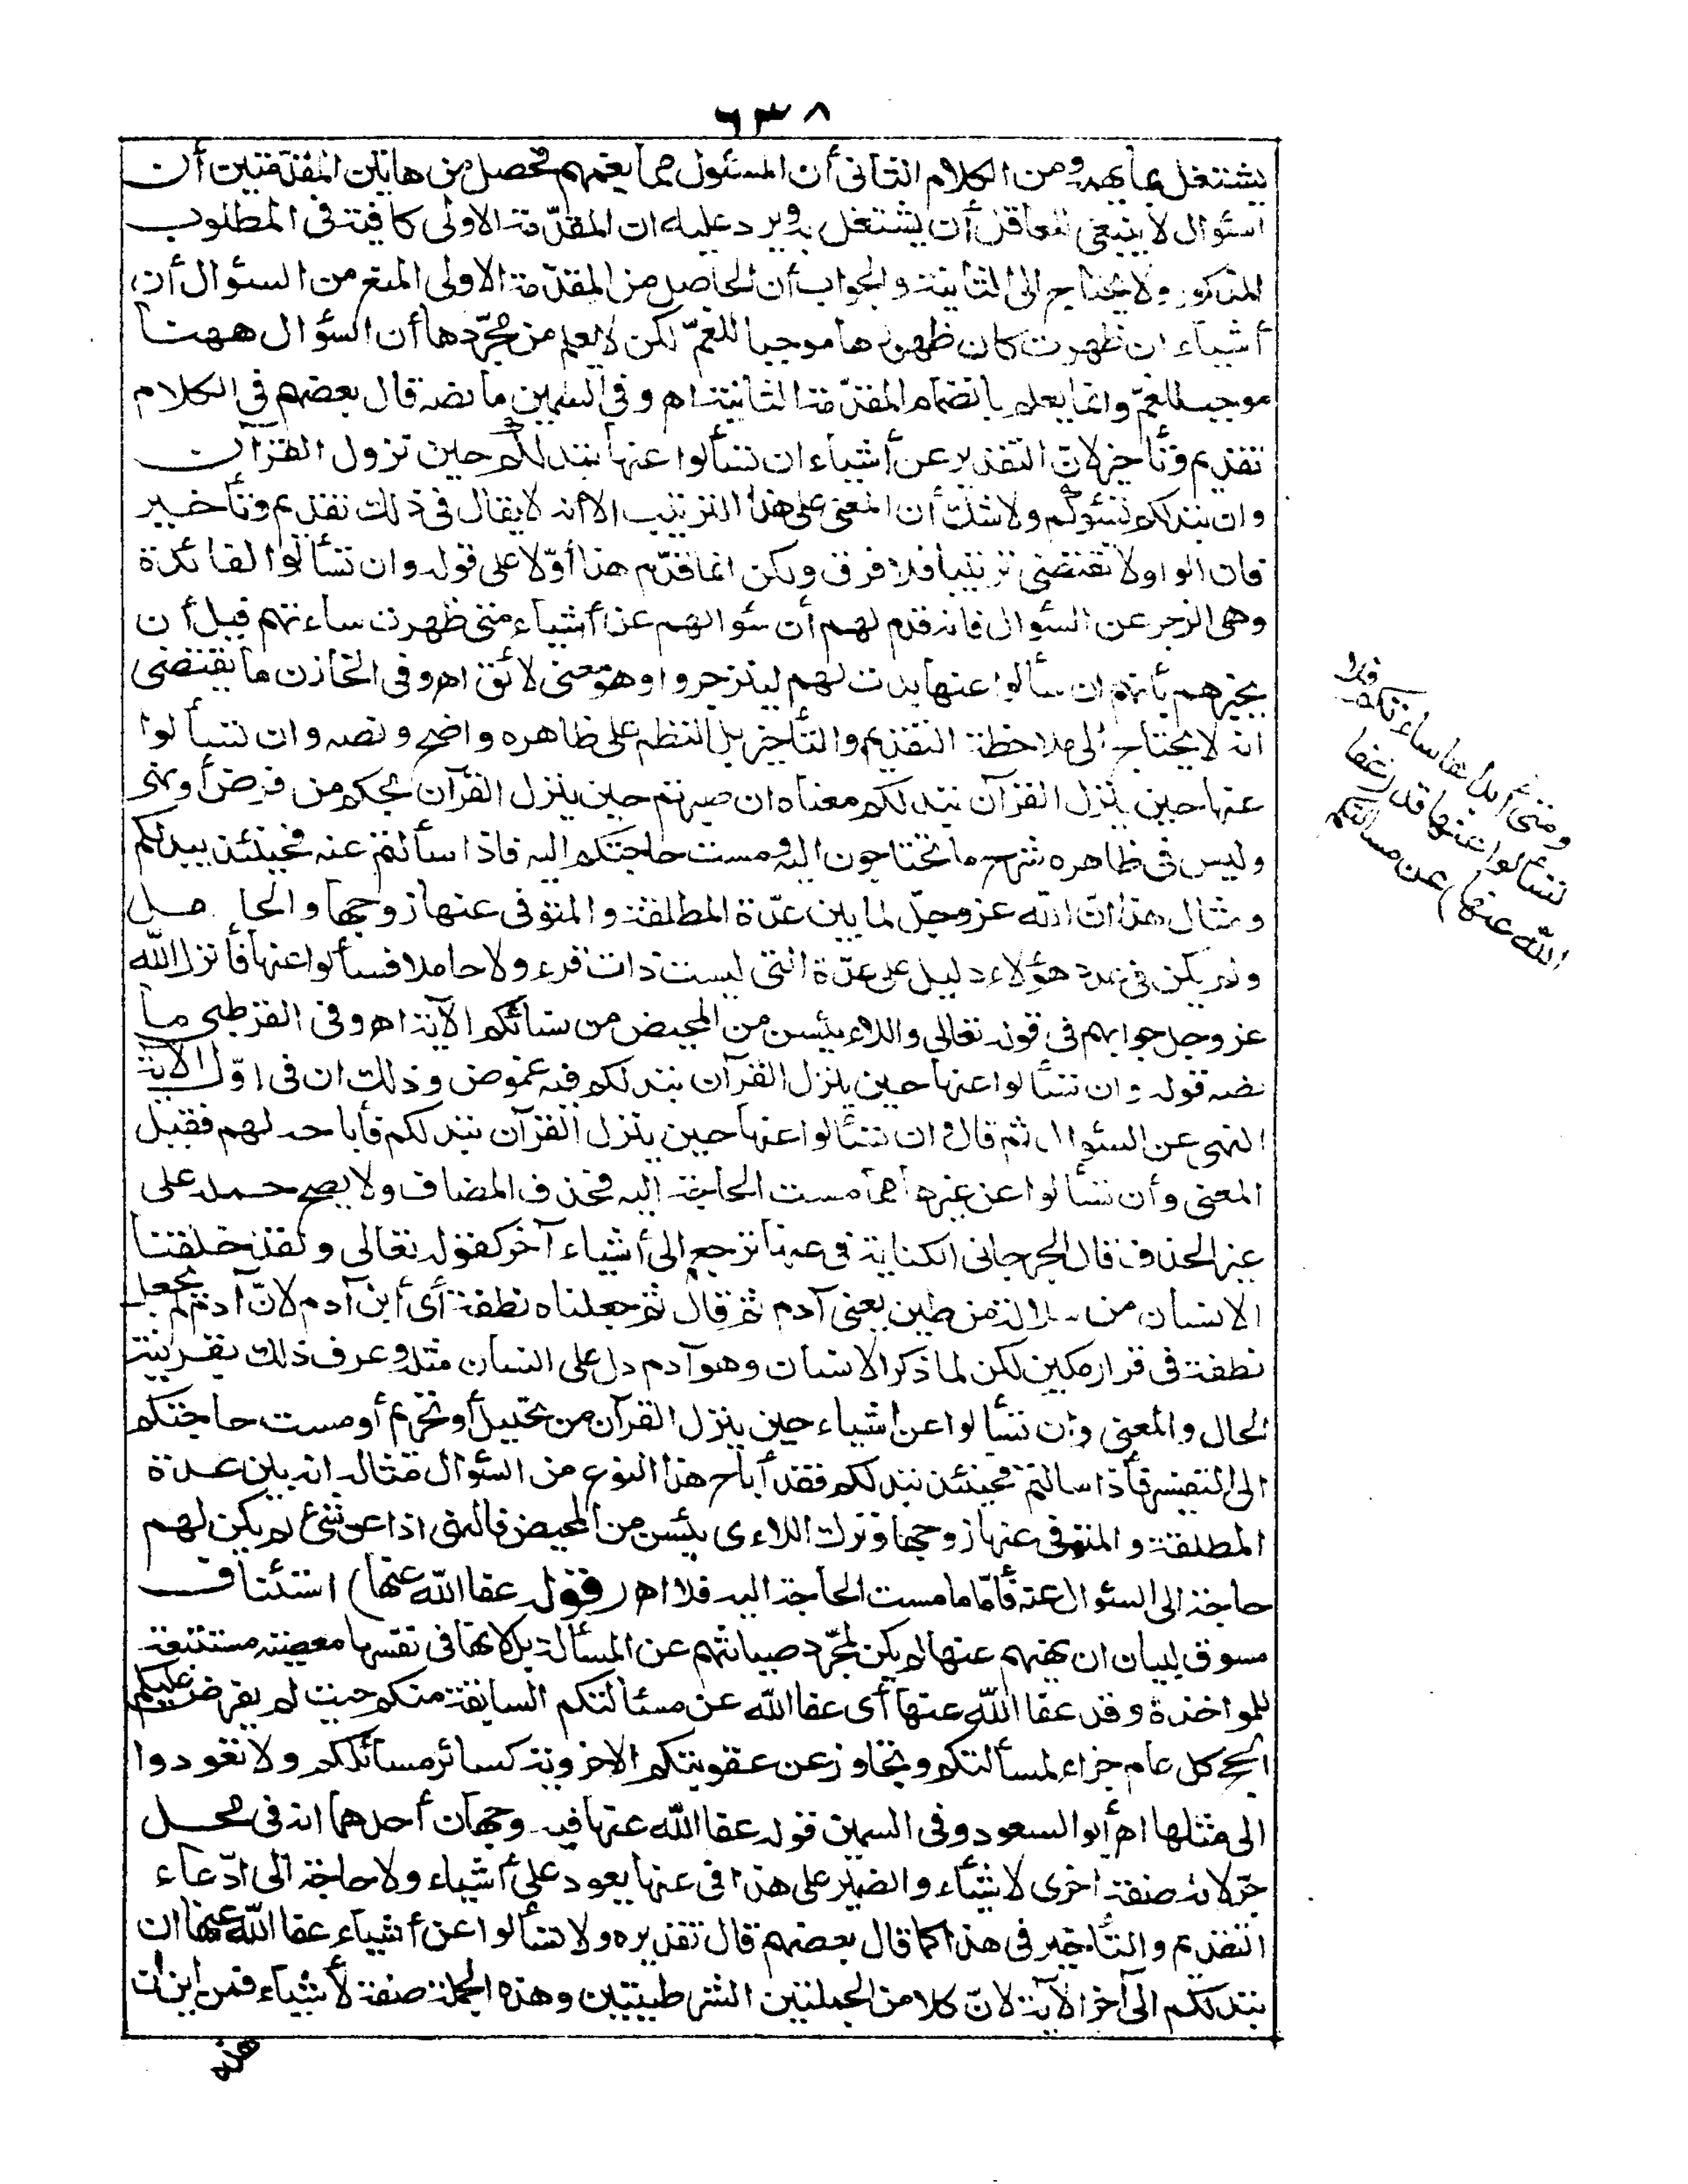 ٦٣٨
يشتغل بما يهمه ومن الكلام الثانى أن المسئول مما يغمهم تحصل من هاتين المقدّمتين أن
السؤال لا ينبغى للعاقل أن يشتغل به ويرد عليه ان المقدّمة الاولى كافية فى المطلوب
المذكور ولا يحتاج الى الثانية والجواب أن الحاصل من المقدّمة الاولى المنع من السؤال أن
أشياء ان ظهرت كان ظهورها موجبا للغمّ لكن لا يعلم من مجرّدها أن السؤال ههنا
موجب للغمّ وانما يعلم بانضمام المقدّمة الثانية اه وفى السمين ما نصه قال بعضهم فى الكلام
تقديم وتأخير لان التقدير عن أشياء ان تسألوا عنها تبد لكم حين نزول القرآن
وان تبد لكم تسؤكم ولا شك أن المعنى على هذا الترتيب الا أنه لا يقال فى ذلك تقديم وتأخير
فان الواو لا تقتضى ترتيبا فلا فرق ولكن انما قدّم هذا أوّلا على قوله وان تسألوا لفائدة
وهى الزجر عن السؤال فانه قدم لهم أن سؤالهم عن أشياء متى ظهرت ساءتهم قبل أن
يخبرهم بأنهم ان سألوا عنها بدت لهم لينزجروا وهو معنى لائق اه وفى الخازن ما يقتضى
انه لا يحتاج الى ملاحظة التقديم والتأخير بل النظم على ظاهره واضح ونصه وان تسألوا
عنها حين ينزل القرآن تبد لكم معناه ان صبرتم حين ينزل القرآن بحكم من فرض أو نهى
وليس فى ظاهره شرح ما تحتاجون اليه ومست حاجتكم اليه فاذا سألتم عنه فحينئذ يبد لكم
ومثال هذا انّ الله عز وجلّ لما بين عدّة المطلقة والمتوفى عنها زوجها والحامل
ولم يكن فى عدد هؤلاء دليل على عدّة التى ليست ذات قرء ولا حاملا فسألوا عنها فأنزل الله
عز وجل جوابهم فى قوله تعالى واللاء يئسن من المحيض من نسائكم الآية اه وفى القرطبى ما
نصه قوله وان تسألوا عنها حين ينزل القرآن تبد لكم فيه غموض وذلك ان فى اوّل الآية
النهى عن السؤال ثم قال وان تسألوا عنها حين ينزل القرآن تبد لكم فأباحه لهم فقيل
المعنى وأن تسألوا عن غيرها مما مست الحاجة اليه فحذف المضاف ولا يصح حمله على
غير الحذف قال الجرجانى الكناية فى عنها ترجع الى أشياء آخر كقوله تعالى ولقد خلقنا
الانسان من سلالة من طين يعنى آدم ثم قال ثم جعلناه نطفة أى ابن آدم لانّ آدم لم يجعل
نطفة فى قرار مكين لكن لما ذكر الانسان وهو آدم دل على انسان مثله وعرف ذلك بقرينة
الحال والمعنى وان تسألوا عن أشياء حين ينزل القرآن من تحليل أو تحريم أو مست حاجتكم
الى التفسير فأذا سالتم فحينئذ تبد لكم فقد أباح هذا النوع من السؤال مثاله انه بين عدة
المطلقة والمتوفى عنها زوجها وترك اللاءى يئسن من المحيض فالنهى اذا عن شئ لم يكن لهم
حاجة الى السؤال عنه فأمّا ما مست الحاجة اليه فلا اه (قوله عفا الله عنها) استئناف
مسوق لبيان ان نهيهم عنها لم يكن لمجرّد صيانتهم عن المسألة بل لانها فى نفسها معصية مستتبعة
للمواخذة وقد عفا الله عنها أى عفا الله عن مسئالتكم السابقة منكم حيث لم يفرض عليكم
الحج كل عام جزاء لمسألتكم وتجاوز عن عقوبتكم الاخروية كسائر مسائلكم ولا تعودوا
الى مثلها اه أبو السعود وفى السمين قوله عفا الله عنها فيه وجهان أحدهما انه فى محل
جرّ لانه صفة اخرى لاشياء والضمير على هذا فى عنها يعود على أشياء ولا حاجة الى ادّعاء
التقديم والتأخير فى هذا كما قال بعضهم قال تقديره ولا تسألوا عن أشياء عفا الله عنها ان
تبد لكم الى آخر الآية لانّ كلا من الجملتين الشرطيتين وهذه الجملة صفة لأشياء فمن اين ان
هذه
ومتى أبداها ساءتكم فلا
تسألوا عنها قد (عفا
الله عنها) عن مسالتكم